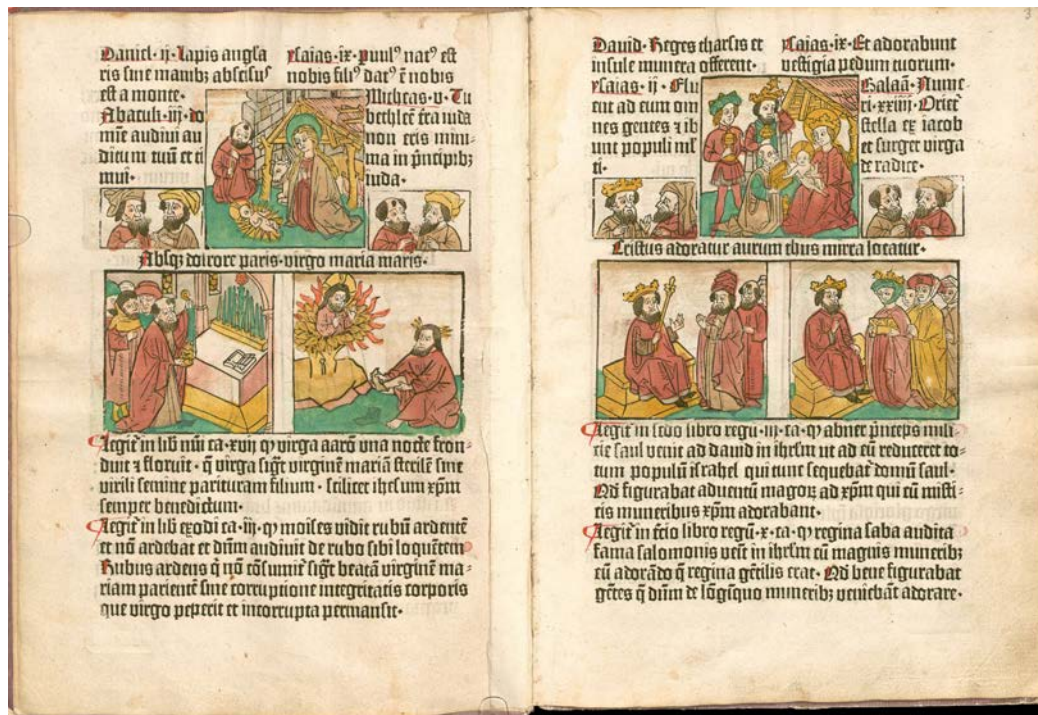 Daniel · ij · Lapis angla
ris sine manibꝫ abscisusꝰ
est a monte ·
Abacuk · iij · do
mīe audini au
ditum tuū et ti
mui ·
ysaias · ix · puulꝰ natꝰ est
nobis filiꝰ datꝰ ē nobis
Micheas · v · Tu
bethleē tr̄a iuda
non eris mini-
ma in p̄ncipibꝫ
iuda ·
Absqꝫ dolore paris · virgo maria maris ·
Legit̄ in lib̄ nūi ca · xvij · qꝫ virga aarō vna nocte fron-
duit ⁊ floruit · q̄ virga sig̅t virginē mariā sterilē sine
virili semine parituram filium · scilicet ihesum xp̄m
semper benedictum ·
Legit̄ in lib̄ exodi ca · iij · qꝫ moises vidit rubū ardentē
et nō ardebat et dn̄m audiuit de rubo sibi loquētem
Rubus ardens q̄ nō cōsumit̄ sig̅t beatā virginē ma-
riam parientē sine corruptione integritatis corporis
que virgo peperit et incorrupta permansit ·
3
Dauid · Reges tharsis et
insule munera offerent ·
ysaias · ij · Flu
ent ad eum om
nes gentes ⁊ ib
unt populi ml̄
ti ·
ysaias · ix · Et adorabunt
vestigia pedum tuorum ·
Balaā · Nume-
ri · xxiiij · Oriet̄
stella ex iacob
et surget virga
de radice ·
Cristus adoratur aurum thus mirra locatur ·
Legit̄ in scd̄o libro regū · iij · ca · qꝫ abner p̄nceps mili-
tie saul venit ad dauid in ihrl̄m ut ad eū reduceret to-
tum populū israhel qui tunc sequebat̄ domū saul ·
Qd̄ figurabat aduentū magoꝝ ad xp̄m qui eū misti-
tis muneribus xp̄m adorabant ·
Legit̄ in t̄cio libro regū · x · ca · qꝫ regina saba audita
fama salomonis veīt in ihrl̄m cū magnis muneribꝫ
eū adorādo q̄ regina gētilis erat · Qd̄ bene figurabat
gētes q̄ dn̄m de lōgīquo muneribꝫ veniebāt adorare ·